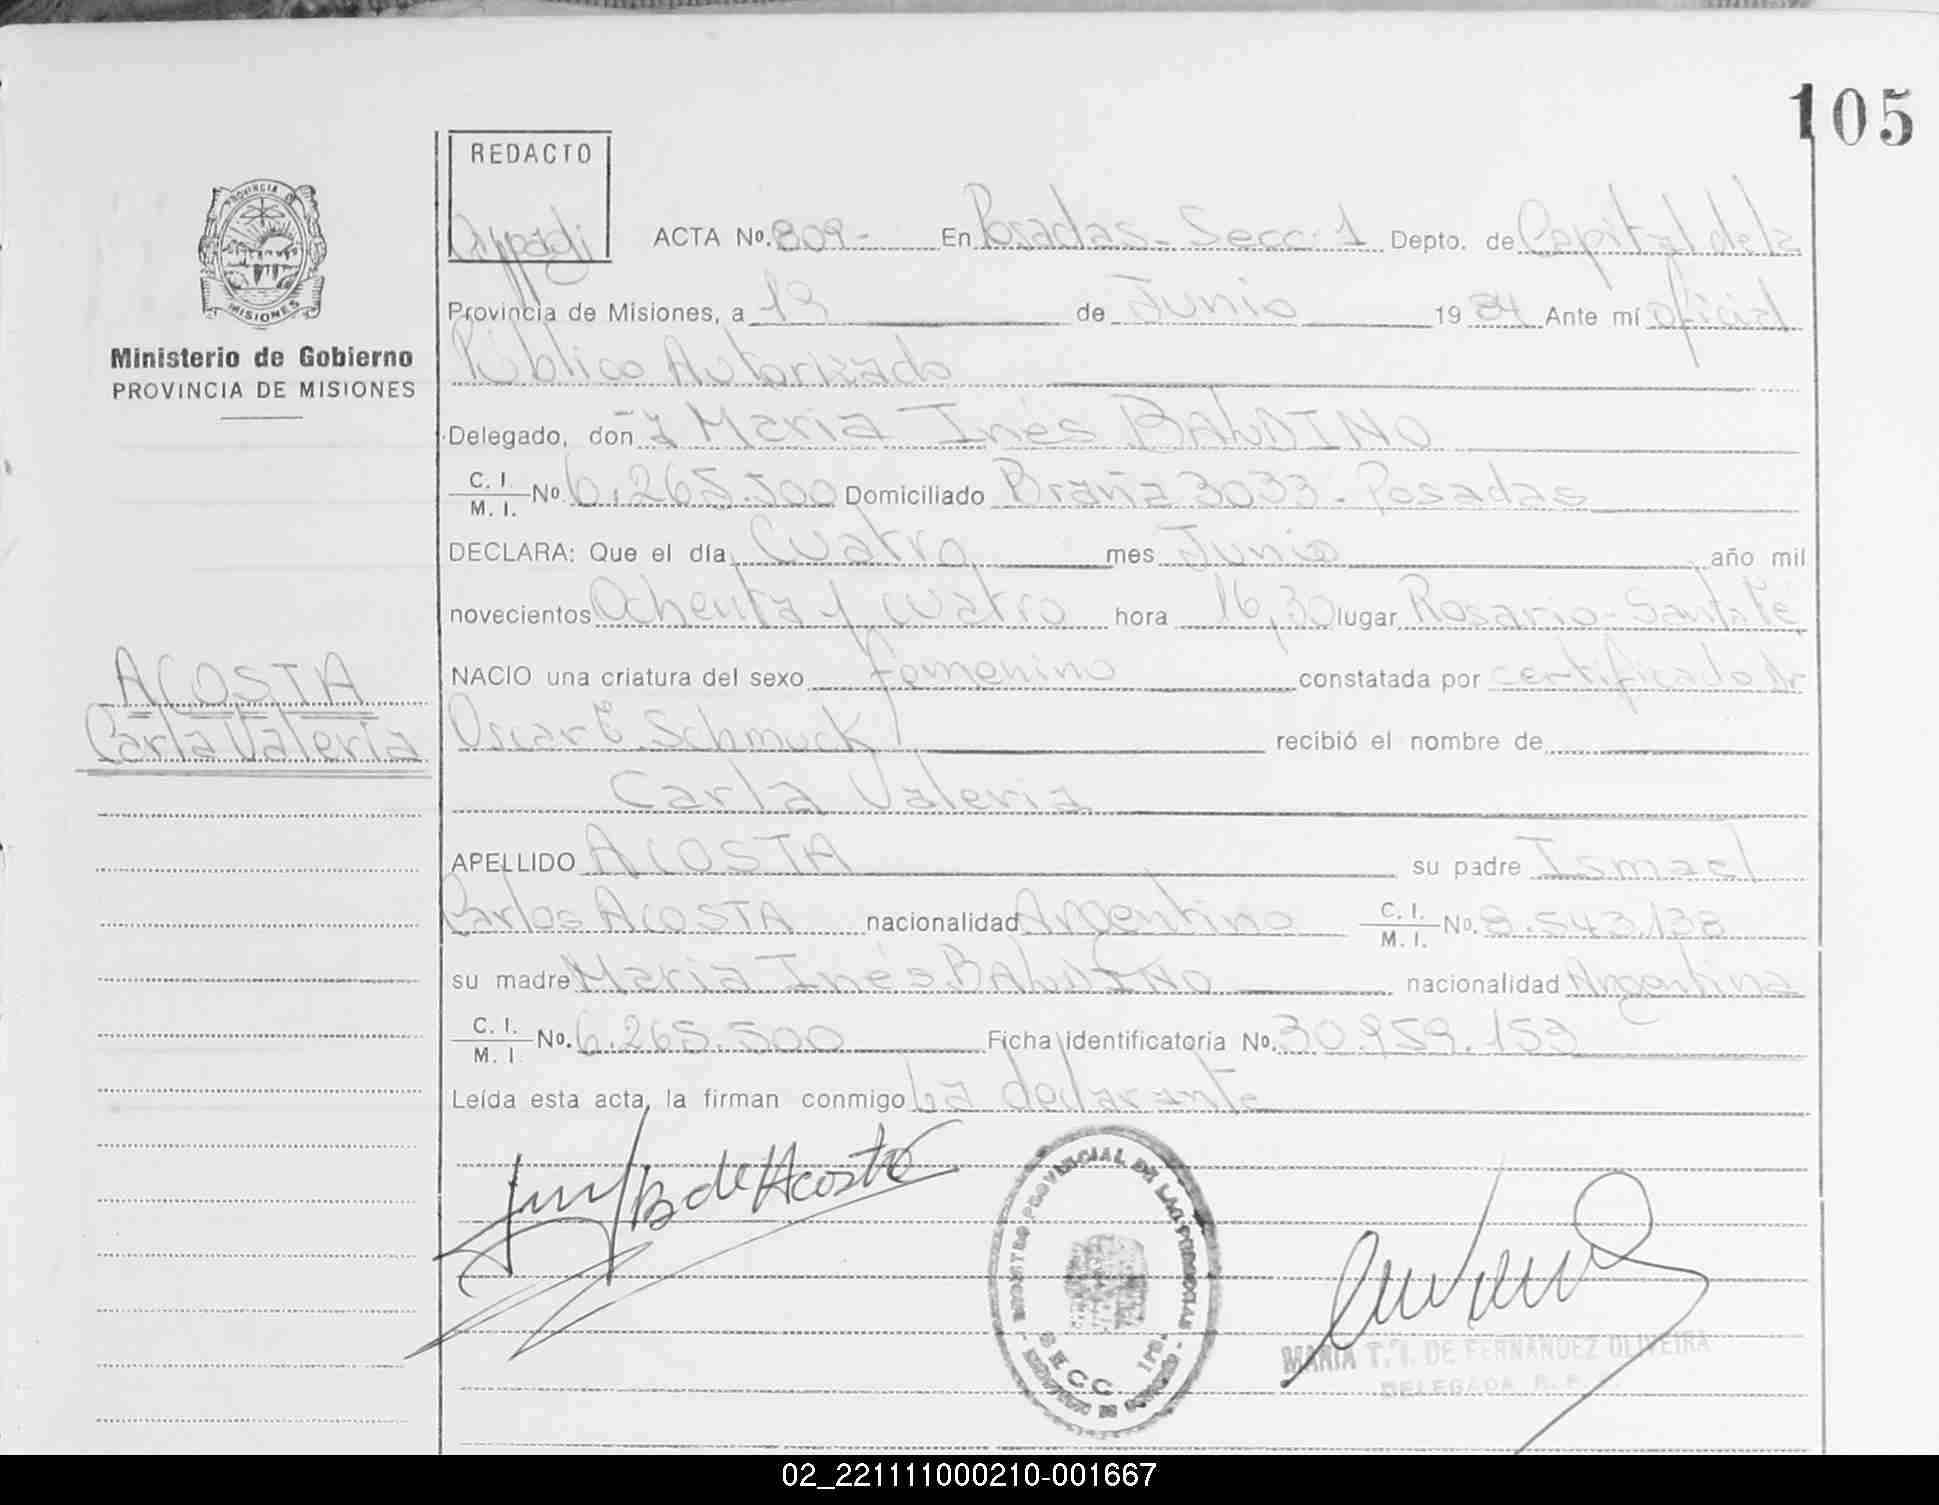 105
REDACTO
ACTA Nº. 809- En Posadas - Secc. 1 Depto. de Capital de la
Provincia de Misiones, a 13 de Junio 1984 Ante mí oficial
Público Autorizado
Delegado, don -ña María Inés BALDINO
C. I. / M. I. Nº 6.265.500 Domiciliado Braña 3033 - Posadas
DECLARA: Que el día Cuatro mes Junio año mil
novecientos Ochenta y cuatro hora 16,30 lugar Rosario - Santa Fé
NACIO una criatura del sexo femenino constatada por certificado Dr
Oscar E. Schmuck recibió el nombre de
Carla Valeria
APELLIDO ACOSTA su padre Ismael
Carlos ACOSTA nacionalidad Argentino C. I. / M. I. Nº. 8.543.138
su madre María Inés BALDINO nacionalidad Argentina
C. I. / M. I. Nº. 6.265.500 Ficha identificatoria Nº. 30.959.153
Leída esta acta, la firman conmigo la declarante
PROVINCIA DE
MISIONES
Ministerio de Gobierno
PROVINCIA DE MISIONES
ACOSTA
Carla Valeria
B de Acosta
REGISTRO PROVINCIAL DE LAS PERSONAS
SECC 1ra.
MINISTERIO DE GOBIERNO
MARIA T. I. DE FERNANDEZ OLIVEIRA
DELEGADA R. P.
02_221111000210-001667